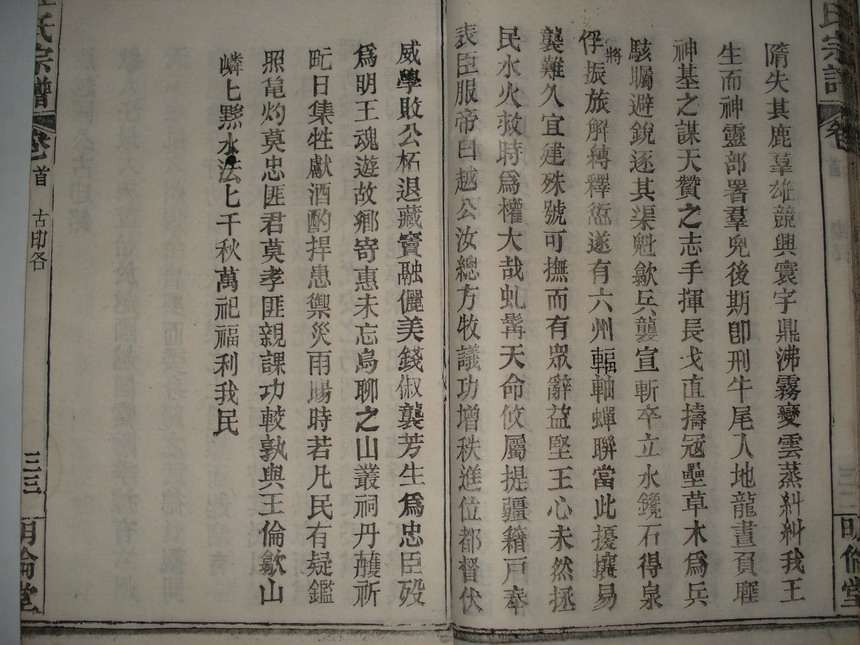 隋失其鹿羣雄競興寰宇鼎沸霧變雲蒸糾糾我王
生而神靈部署羣兒後期卽刑牛尾入地龍晝頁
神基之謀天贊之志手揮長戈直擣冠壘草木爲兵
駭矚避銳逐其渠魁歙兵襲宣斬卒立水鑱石得泉
俘將振旅解縛釋遂有六州輻軸蟬聯當此擾攘易
襲難久宜建殊號可撫而有眾辭益堅王心未然拯
民水火救時爲權大哉虬髯天命攸屬提疆籍戸奉
表臣服帝曰越公汝總方牧議功增秩進位都督伏
威學敗公柘退藏竇融儷美錢俶襲芳生爲忠臣歿
爲明王魂遊故鄉寄惠未忘烏聊之山叢祠丹雘祈
甿日集牲獻酒酌捍患禦災雨暘時若凡民有疑鑑
照竜灼莫忠匪君莫孝匪親課功較孰與王倫歙山
嶙匕黟水法匕千秋萬祀福利我民
氏宗譜
卷首
古印各
三三
明倫堂
氏宗譜
卷首
明倫堂